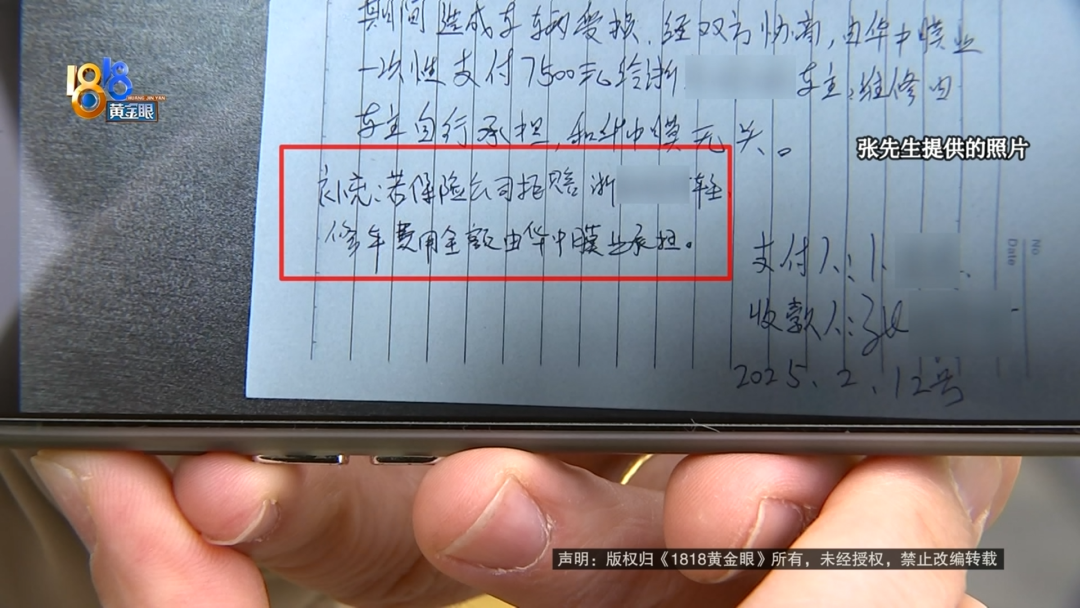 1818
HUANG JIN YAN
黄金眼
张先生提供的照片
期间造成车辆受损,经双方协商,由华中膜业
一次性支付7500元给浙 车主,维修由
车主自行承担,和华中膜无关。
补充:若保险公司拒赔 浙 车
修车费用全额由华中膜业承担。
No
Date
支付人:
收款人:
2025.2.12号
声明:版权归《1818黄金眼》所有,未经授权,禁止改编转载